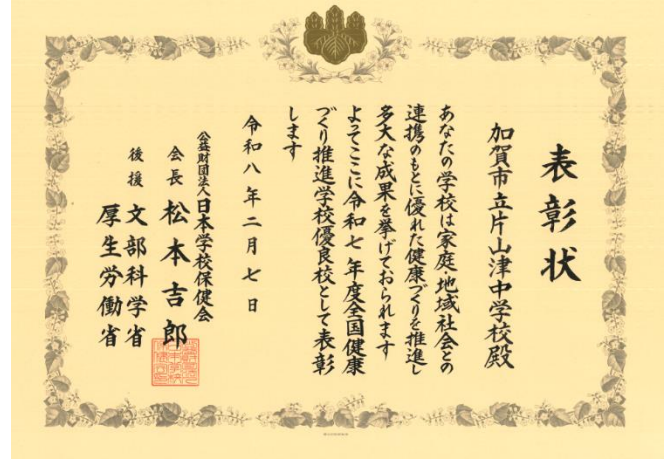 表彰状
加賀市立片山津中学校殿
あなたの学校は家庭・地域社会との
連携のもとに優れた健康づくりを推進し
多大な成果を挙げておられます
よってここに令和七年度全国健康
づくり推進学校優良校として表彰
します
令和八年二月七日
公益財団法人日本学校保健会
会長 松本吉郎
後援 文部科学省
厚生労働省